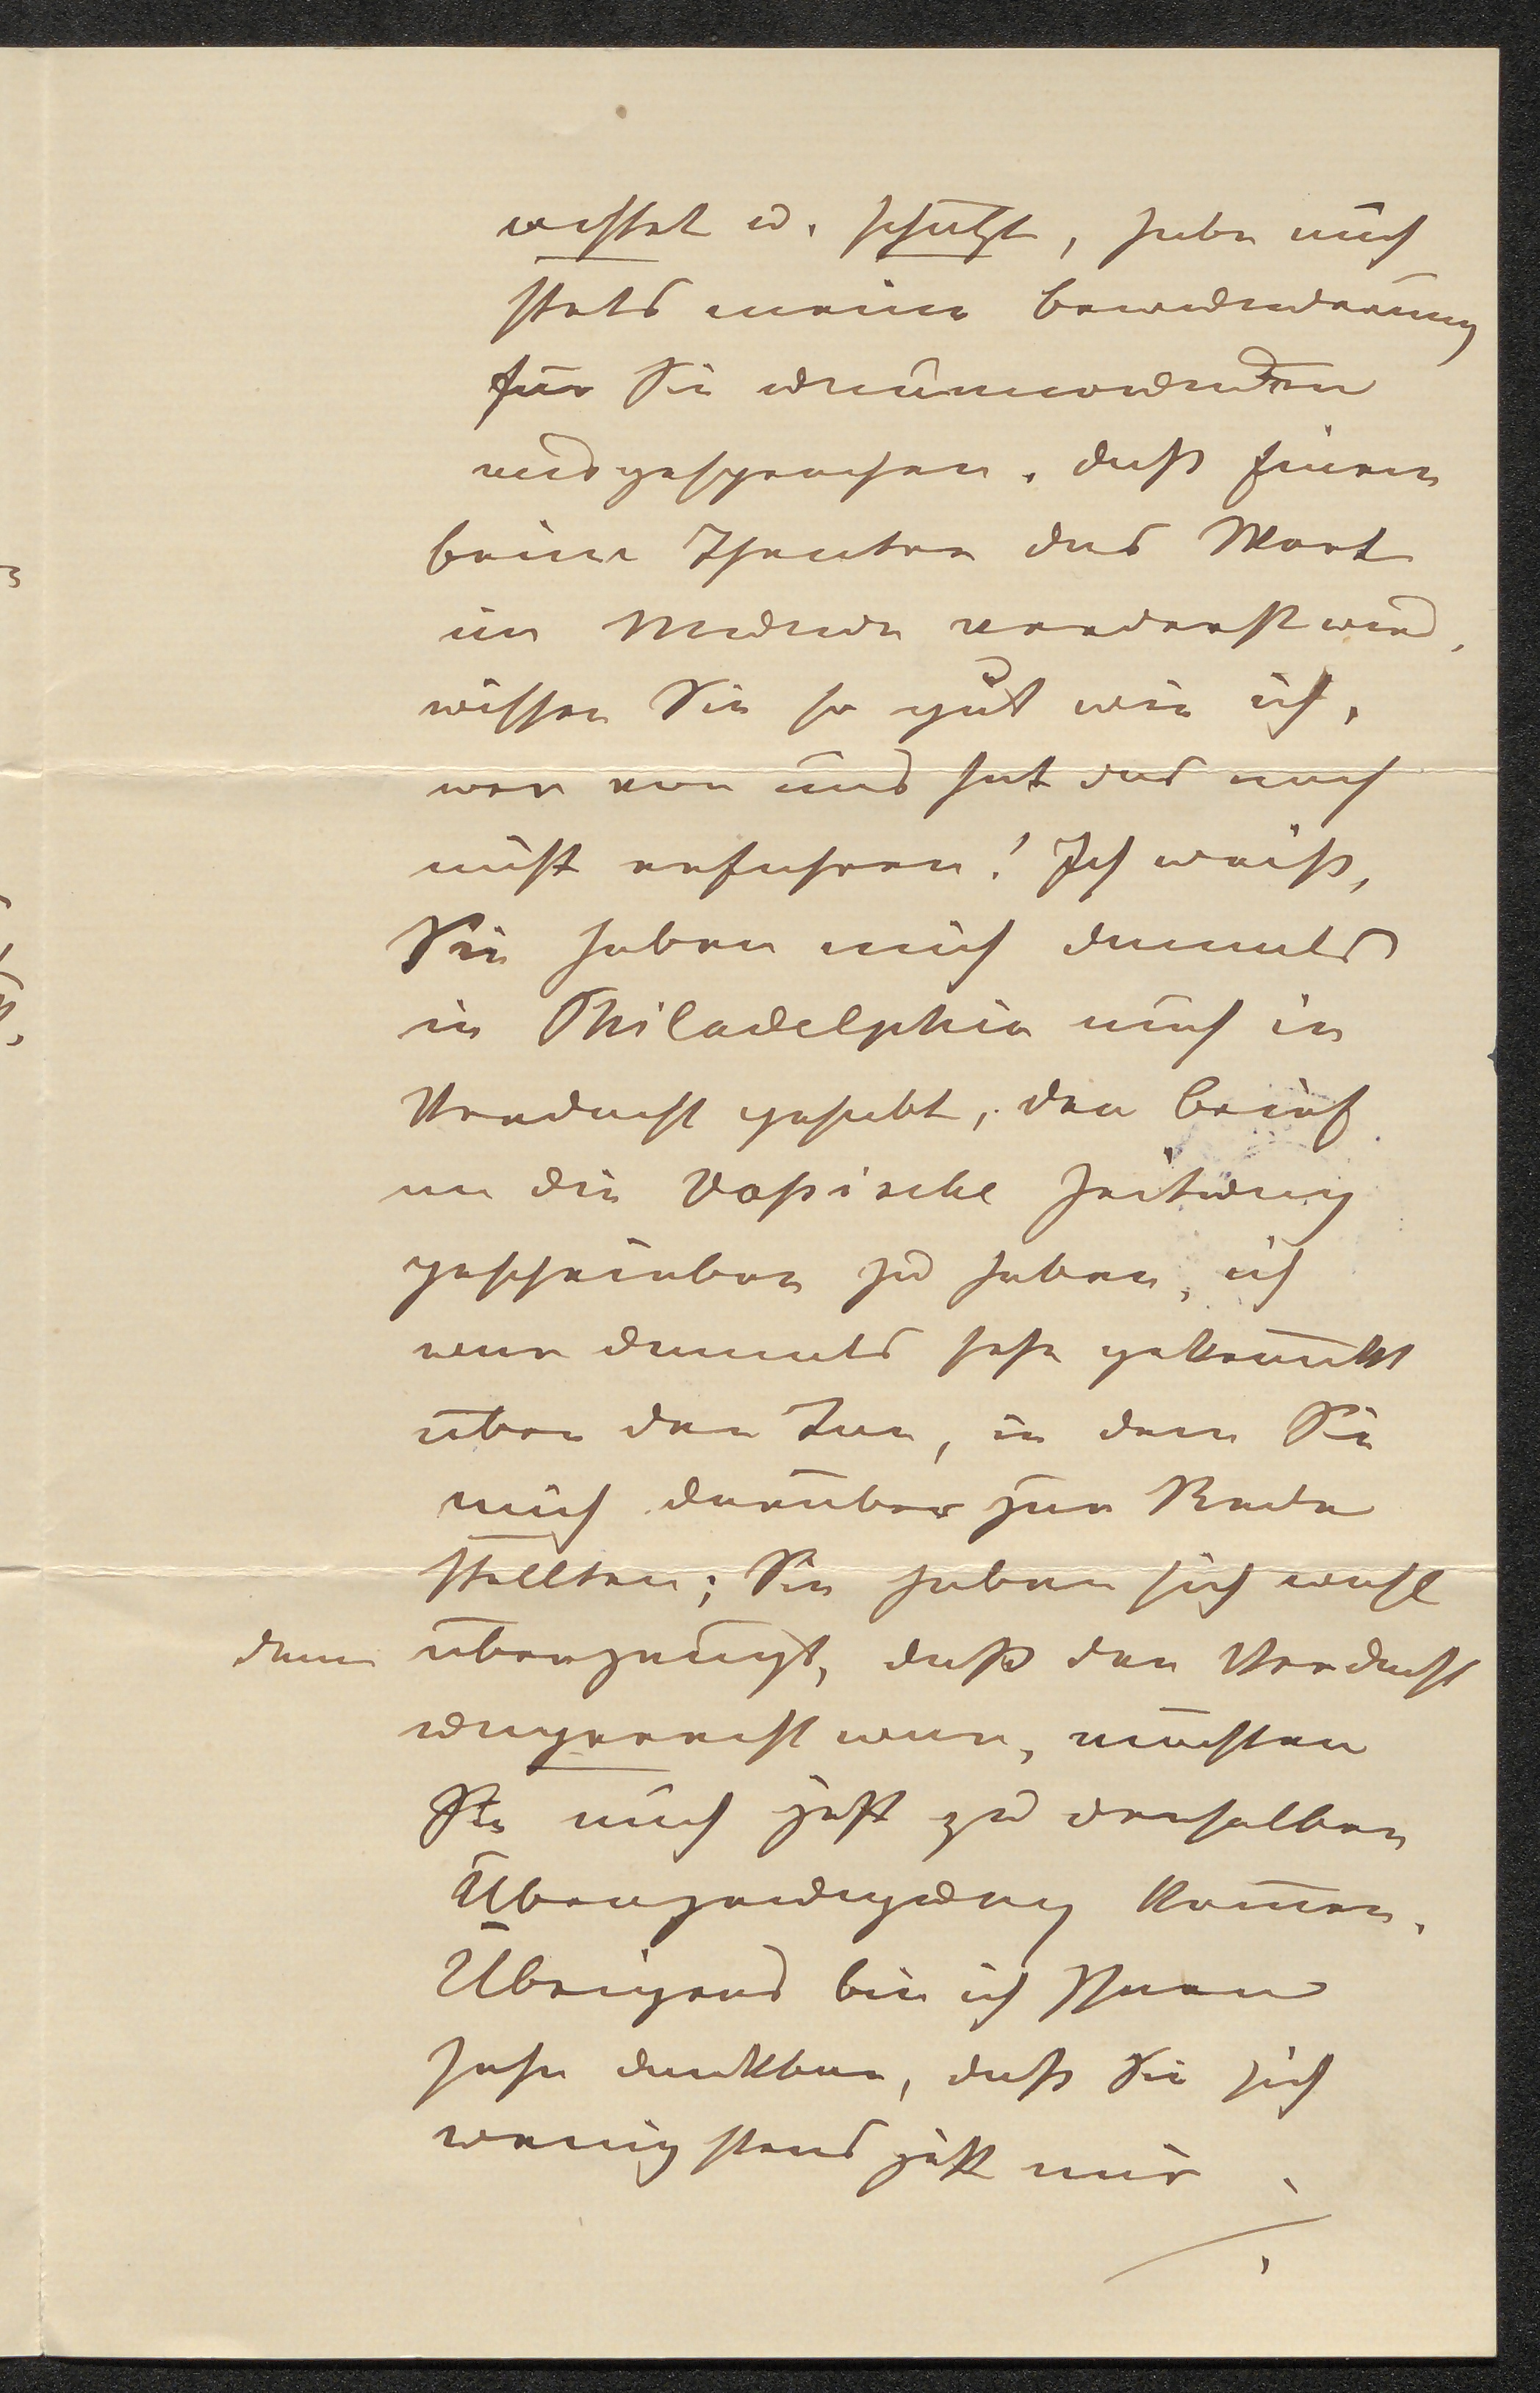 achtet u. schätzt, habe auch
stets meine Bewunderung
für Sie unumwunden
ausgesprochen. daß Einem
beim Theater das Wort
im Munde verdreht wird,
wissen Sie so gut wie ich,
wer von uns hat das noch
nicht erfahren! Ich weiß,
Sie haben mich damals
in Philadelphia auch in
Verdacht gehabt, den Brief
an die Vossische Zeitung
geschrieben zu haben, ich
war damals sehr gekränkt
über den Ton, in dem Sie
mich darüber zur Rede
stellten; Sie haben sich wohl
dann überzeugt, daß der Verdacht
ungerecht war, möchten
Sie auch jetzt zu derselben
Überzeugung kommen.
Übrigens bin ich Ihnen
sehr dankbar, daß Sie sich
wenigstens jetzt mir